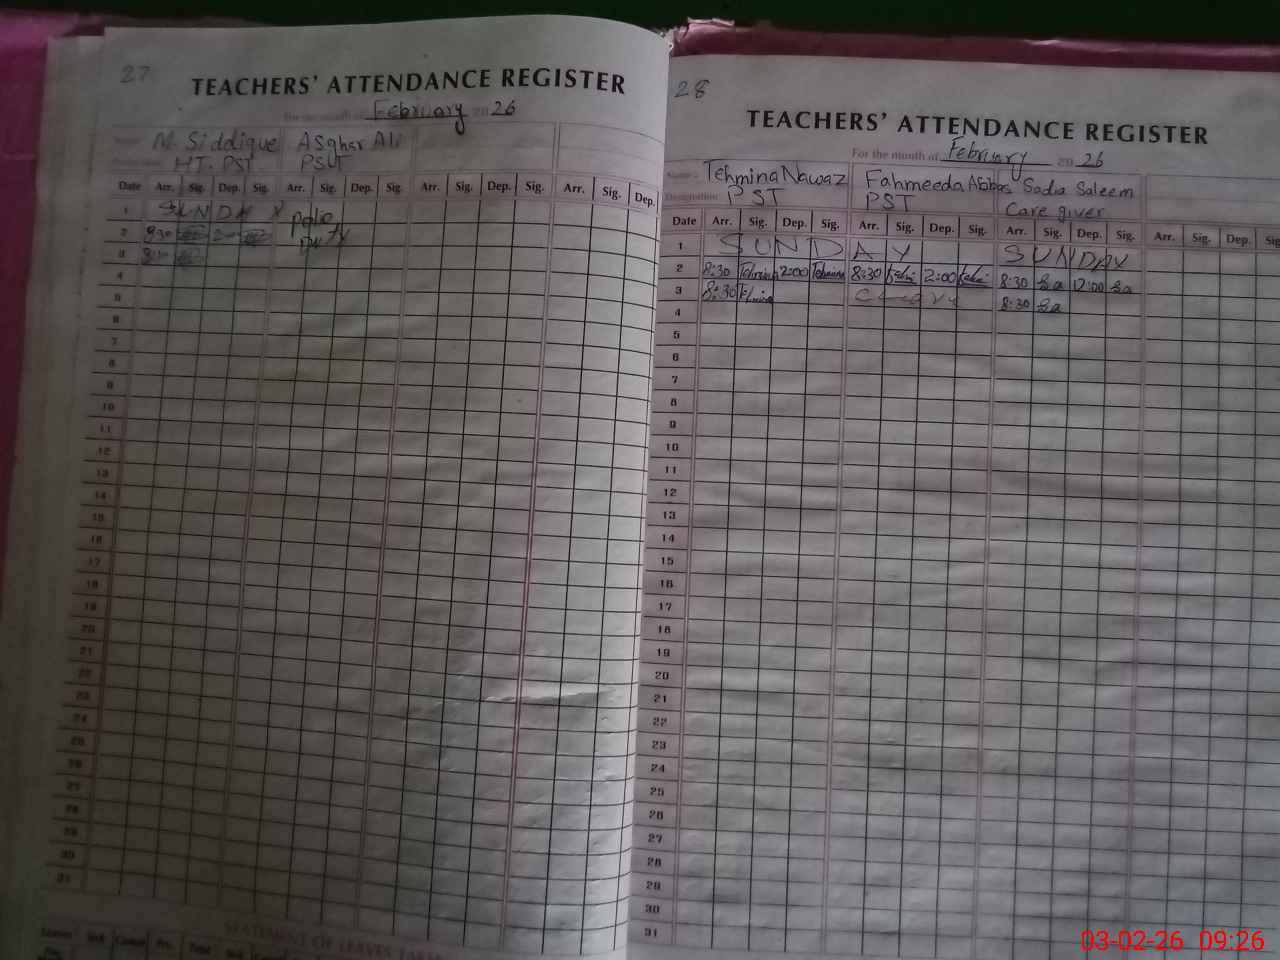 27
TEACHERS' ATTENDANCE REGISTER
For the month of February 2026
M. Siddique Asghar Ali
HT. PST PST
Date Arr. Sig. Dep. Sig. Arr. Sig. Dep. Sig. Arr. Sig. Dep. Sig. Arr. Sig. Dep.
1 SUNDAY Polio
2 8:30 2:00 Duty
3 8:30
4
5
6
7
8
9
10
11
12
13
14
15
16
17
18
19
20
21
22
23
24
25
26
27
28
29
30
31
STATEMENT OF LEAVES TAKEN
28
TEACHERS' ATTENDANCE REGISTER
For the month of February 2026
Name Tehmina Nawaz Fahmeeda Abbas Sadia Saleem
Designation PST PST Care giver
Date Arr. Sig. Dep. Sig. Arr. Sig. Dep. Sig. Arr. Sig. Dep. Sig. Arr. Sig. Dep. Sig.
1 SUNDAY SUNDAY
2 8:30 Tehmina 2:00 Tehmina 8:30 2:00 8:30 Sa 12:00 Sa
3 8:30 8:30 Sa
4
5
6
7
8
9
10
11
12
13
14
15
16
17
18
19
20
21
22
23
24
25
26
27
28
29
30
31
03-02-26 09:26